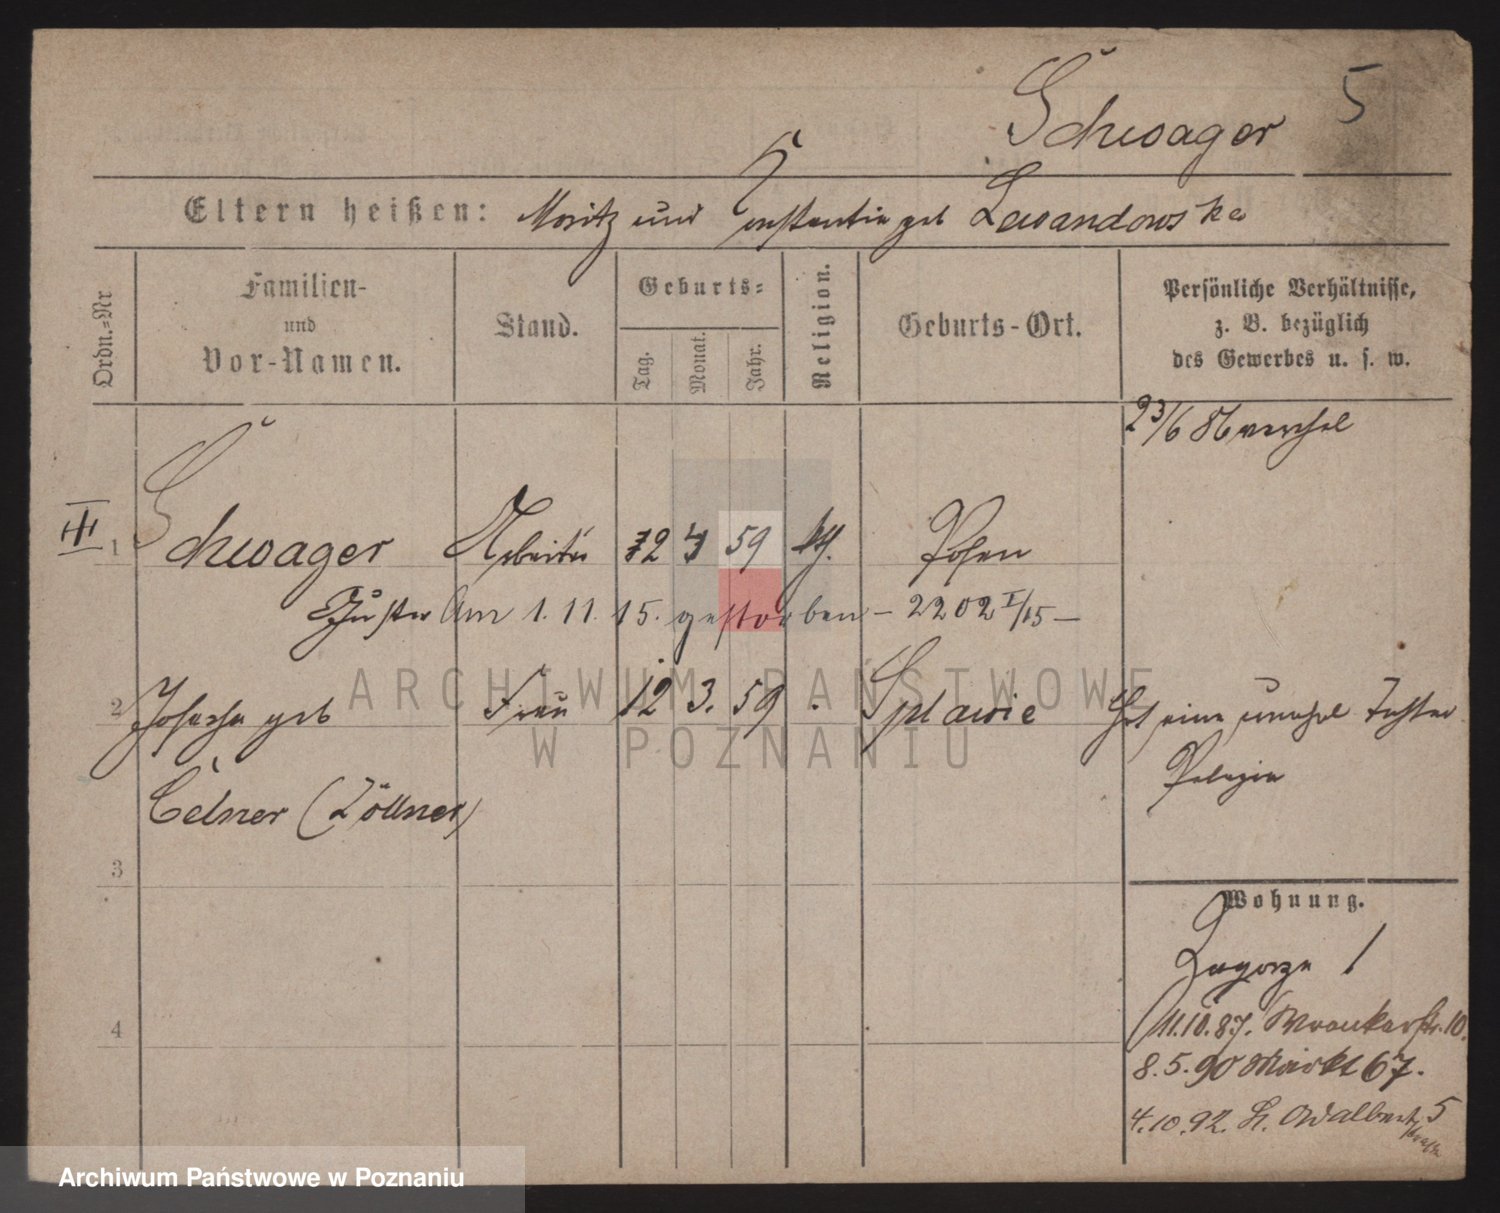 5
Schwager
Eltern heißen: Moritz und Konstantia geb Lewandowska
Ordn.=Nr
Familien-
und
Vor-Namen.
Stand.
Geburts=
Tag.
Monat.
Jahr.
Religion.
Geburts-Ort.
Persönliche Verhältnisse,
z. B. bezüglich
des Gewerbes u. s. w.
23/6 86 verehel
III
1 Schwager Arbeiter 22 59 kth. Posen
Am 1.11.15. gestorben - 2202 I/15 -
2 Josepha geb Frau 12 3. 59 Splawie Hat eine unehel Tochter
Pelagia
Celner (Zöllner)
3
4
Wohnung.
Zagorze 1
11.10.87. Wronkerstr. 10.
8.5.90 Markt 67.
4.10.92. St. Adalbert 5
ARCHIWUM PAŃSTWOWE
W POZNANIU
Archiwum Państwowe w Poznaniu